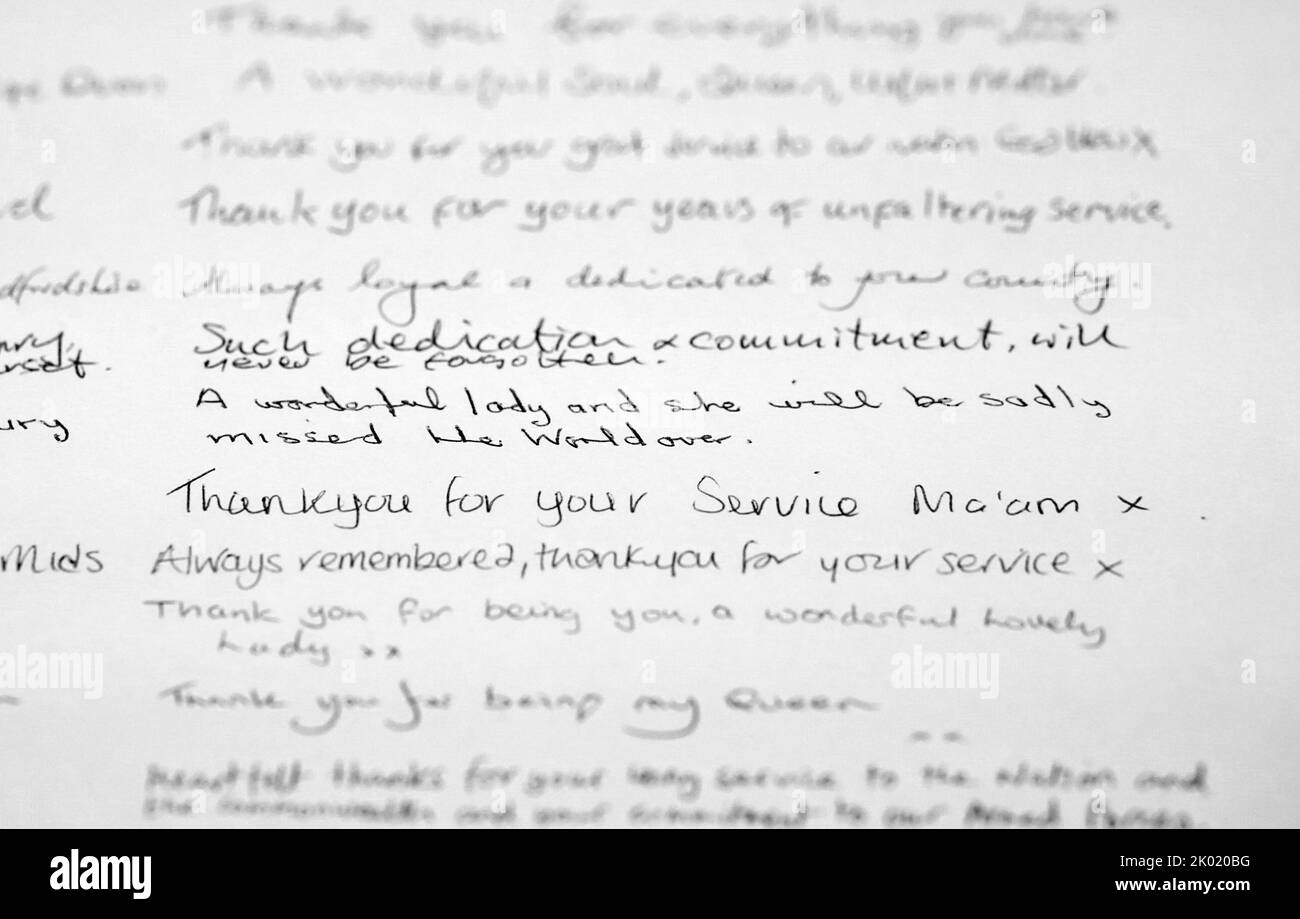 Thank you for everything you
A wonderful Soul, Queen,
Thank you for your great service to our nation God bless x
Thank you for your years of unfaltering service.
dfordshire Always loyal & dedicated to your country.
Such dedication & commitment, will
never be forgotten.
A wonderful lady and she will be sadly
ury
missed the World over.
Thankyou for your Service Ma'am x
Mids Always remembered, thankyou for your service x
Thank you for being you, a wonderful Lovely
Lady xx
Thank you for being my Queen
Heartfelt thanks for your long service to the nation and
the commonwealth and your commitment to our
alamy
alamy
Image ID: 2K020BG
www.alamy.com